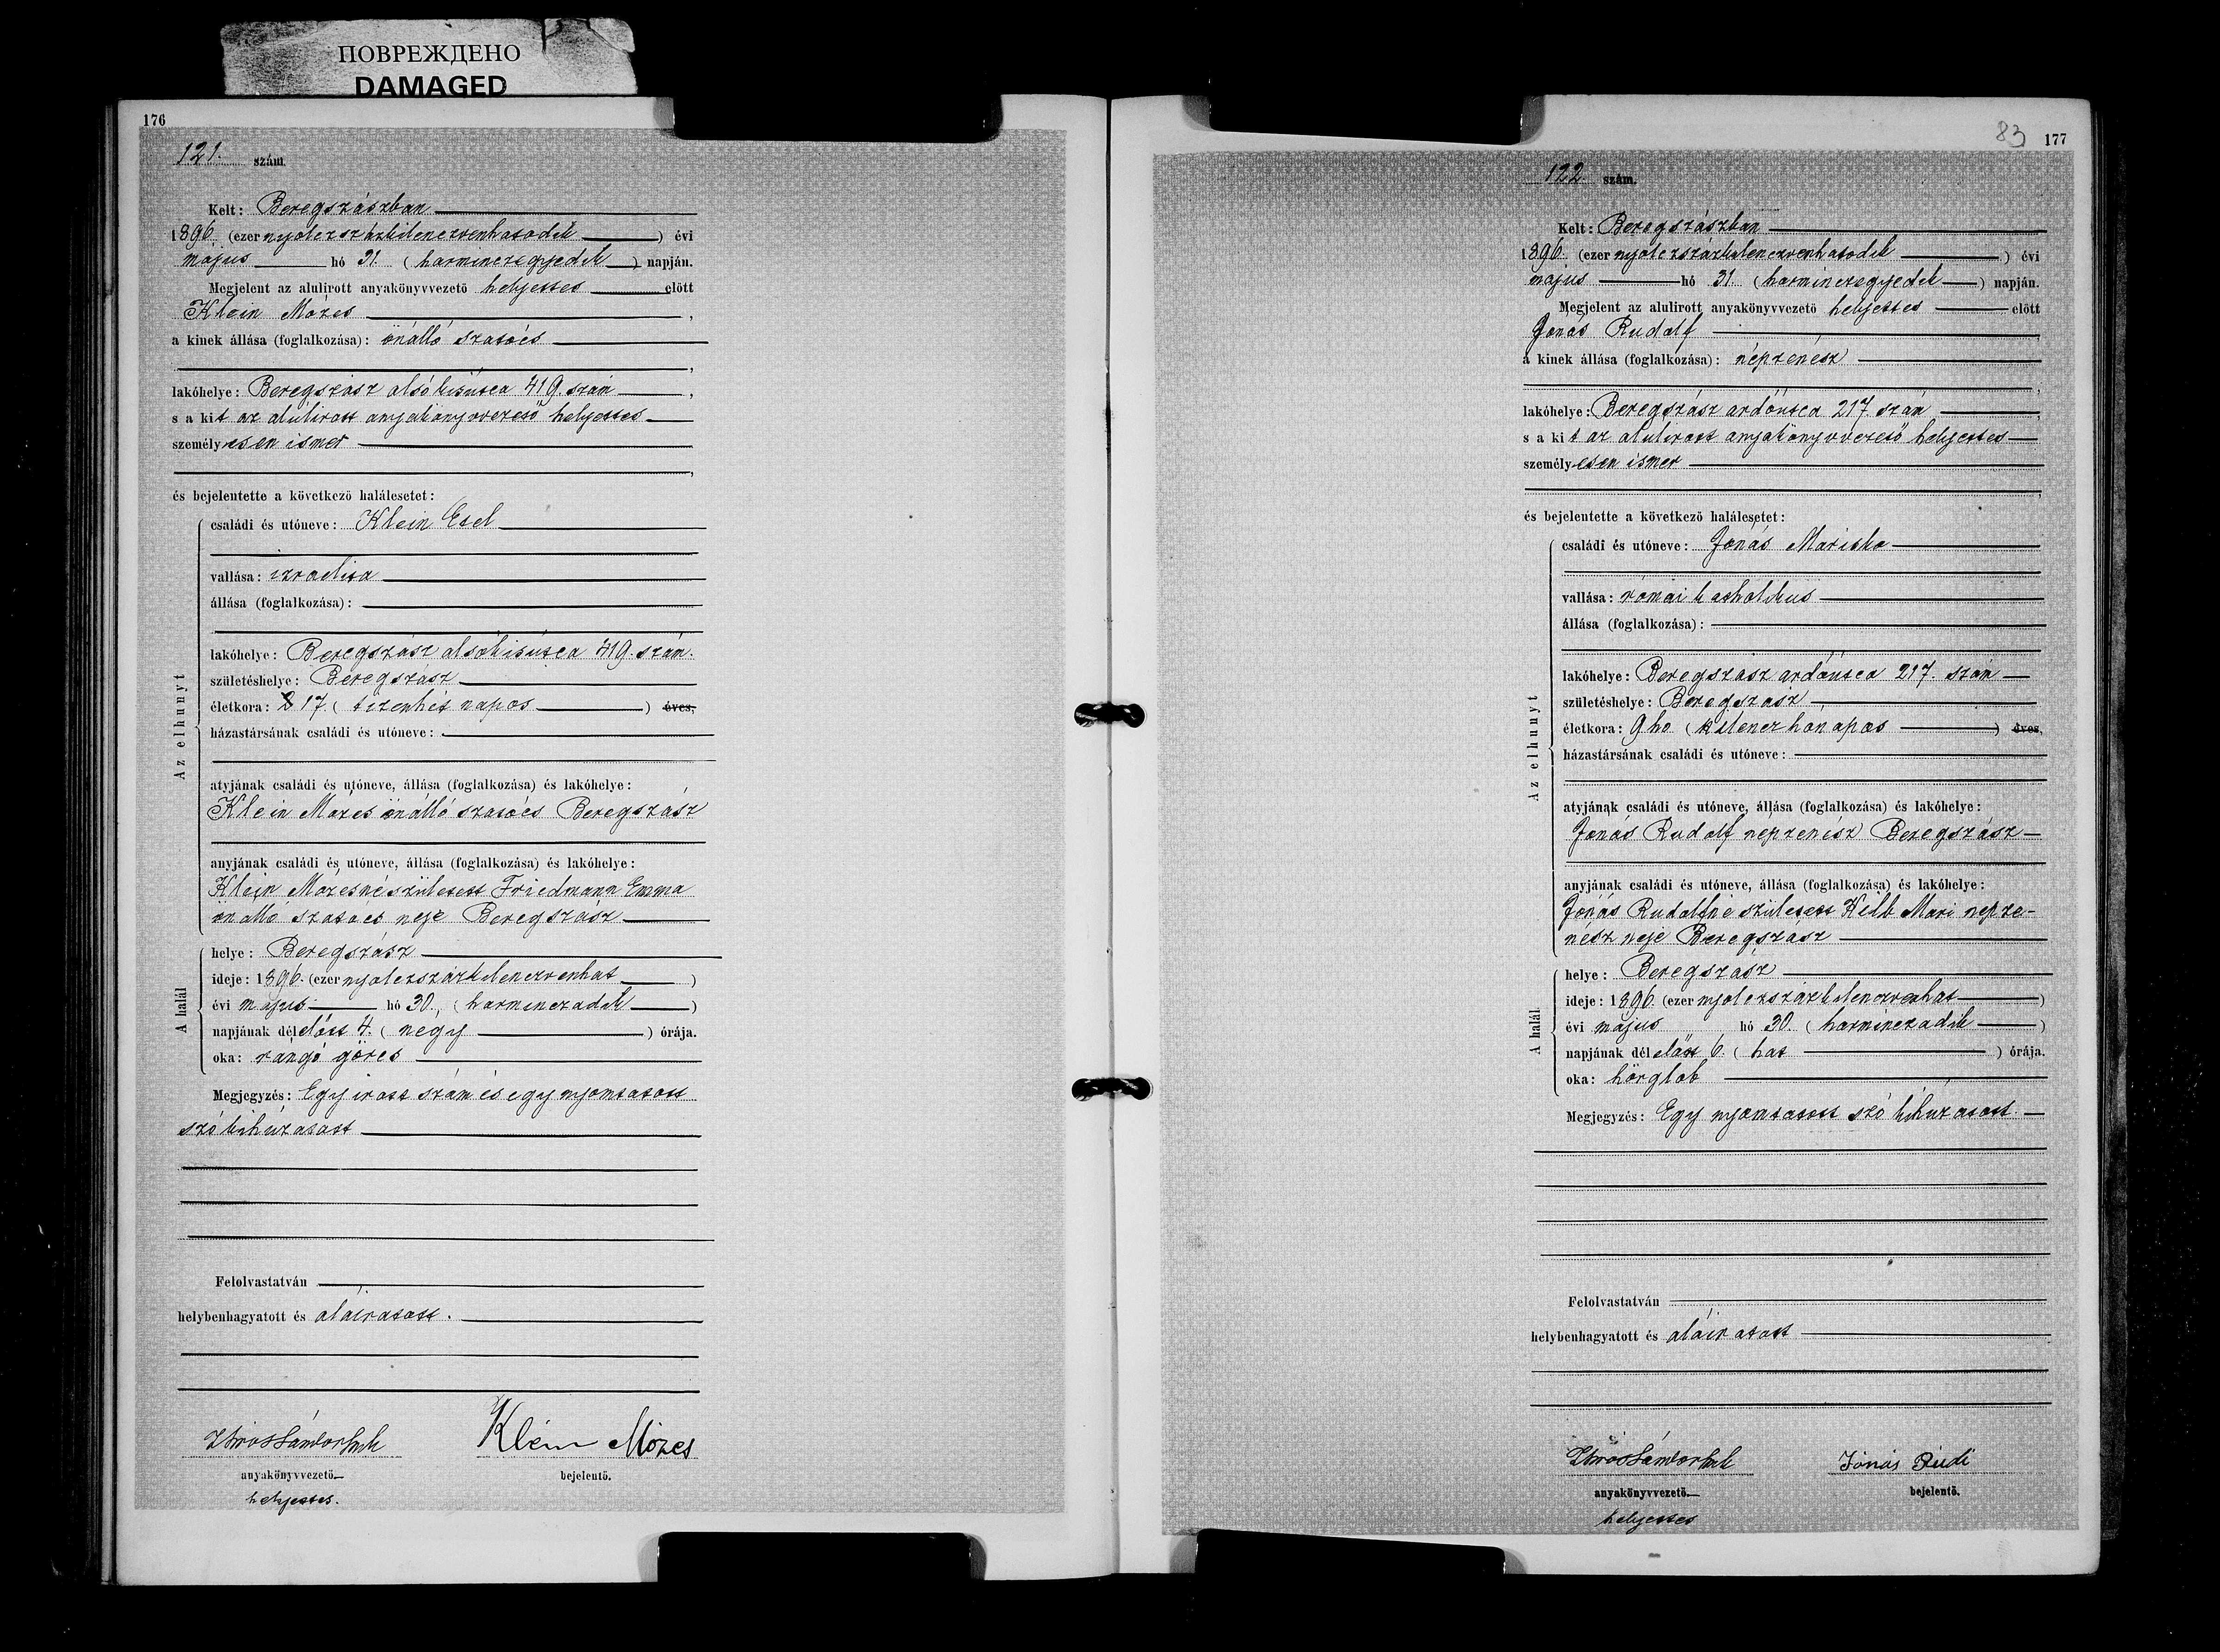 ПОВРЕЖДЕНО
DAMAGED
176
121. szám.
Kelt: Beregszászban
1896. (ezer nyolczszázkilenczvenhatodik) évi
május hó 31. (harminczegyedik) napján.
Megjelent az alulirott anyakönyvvezető helyettes előtt
Klein Mózes,
a kinek állása (foglalkozása): önálló szatócs
,
lakóhelye: Beregszász alsókisútca 419. szám,
s a kit az alulirott anyakönyvvezető helyettes
személyesen ismer
,
és bejelentette a következő halálesetet:
Az elhunyt
családi és utóneve: Klein Esel
vallása: izraelita
állása (foglalkozása):
lakóhelye: Beregszász alsókisútca 419. szám.
születéshelye: Beregszász
életkora: 17. (tizenhét napos) éves,
házastársának családi és utóneve:
atyjának családi és utóneve, állása (foglalkozása) és lakóhelye:
Klein Mózes önálló szatócs Beregszász
anyjának családi és utóneve, állása (foglalkozása) és lakóhelye:
Klein Mózesné született Friedmann Emma
önálló szatócs neje Beregszász
A halál
helye: Beregszász
ideje: 1896. (ezer nyolczszázkilenczvenhat)
évi május hó 30., (harminczadik)
napjának délelőtt 4. (negy) órája.
oka: rángó görcs
Megjegyzés: Egy irott szám és egy nyomtatott
szó kihúzatott
Felolvastatván
helybenhagyatott és aláiratott.
Klein Mózes
anyakönyvvezető
bejelentő.
helyettes.
83
177
122. szám.
Kelt: Beregszászban
1896. (ezer nyolczszázkilenczvenhatodik) évi
május hó 31. (harminczegyedik) napján.
Megjelent az alulirott anyakönyvvezető helyettes előtt
Jónás Rudolf,
a kinek állása (foglalkozása): népzenész
,
lakóhelye: Beregszász ardóutca 217. szám,
s a kit az alulirott anyakönyvvezető helyettes
személyesen ismer
,
és bejelentette a következő halálesetet:
Az elhunyt
családi és utóneve: Jónás Mariska
vallása: római katholikus
állása (foglalkozása):
lakóhelye: Beregszász ardóutca 217. szám
születéshelye: Beregszász
életkora: 9 hó (kilencz hónapos) éves,
házastársának családi és utóneve:
atyjának családi és utóneve, állása (foglalkozása) és lakóhelye:
Jónás Rudolf népzenész Beregszász
anyjának családi és utóneve, állása (foglalkozása) és lakóhelye:
Jónás Rudolfné született Kilb Mari népze-
nész neje Beregszász
A halál
helye: Beregszász
ideje: 1896. (ezer nyolczszázkilenczvenhat)
évi május hó 30. (harminczadik)
napjának délelőtt 6. (hat) órája.
oka: hörglob
Megjegyzés: Egy nyomtatott szó kihúzatott.
Felolvastatván
helybenhagyatott és aláiratott
Jónás Rudi
anyakönyvvezető
bejelentő.
helyettes